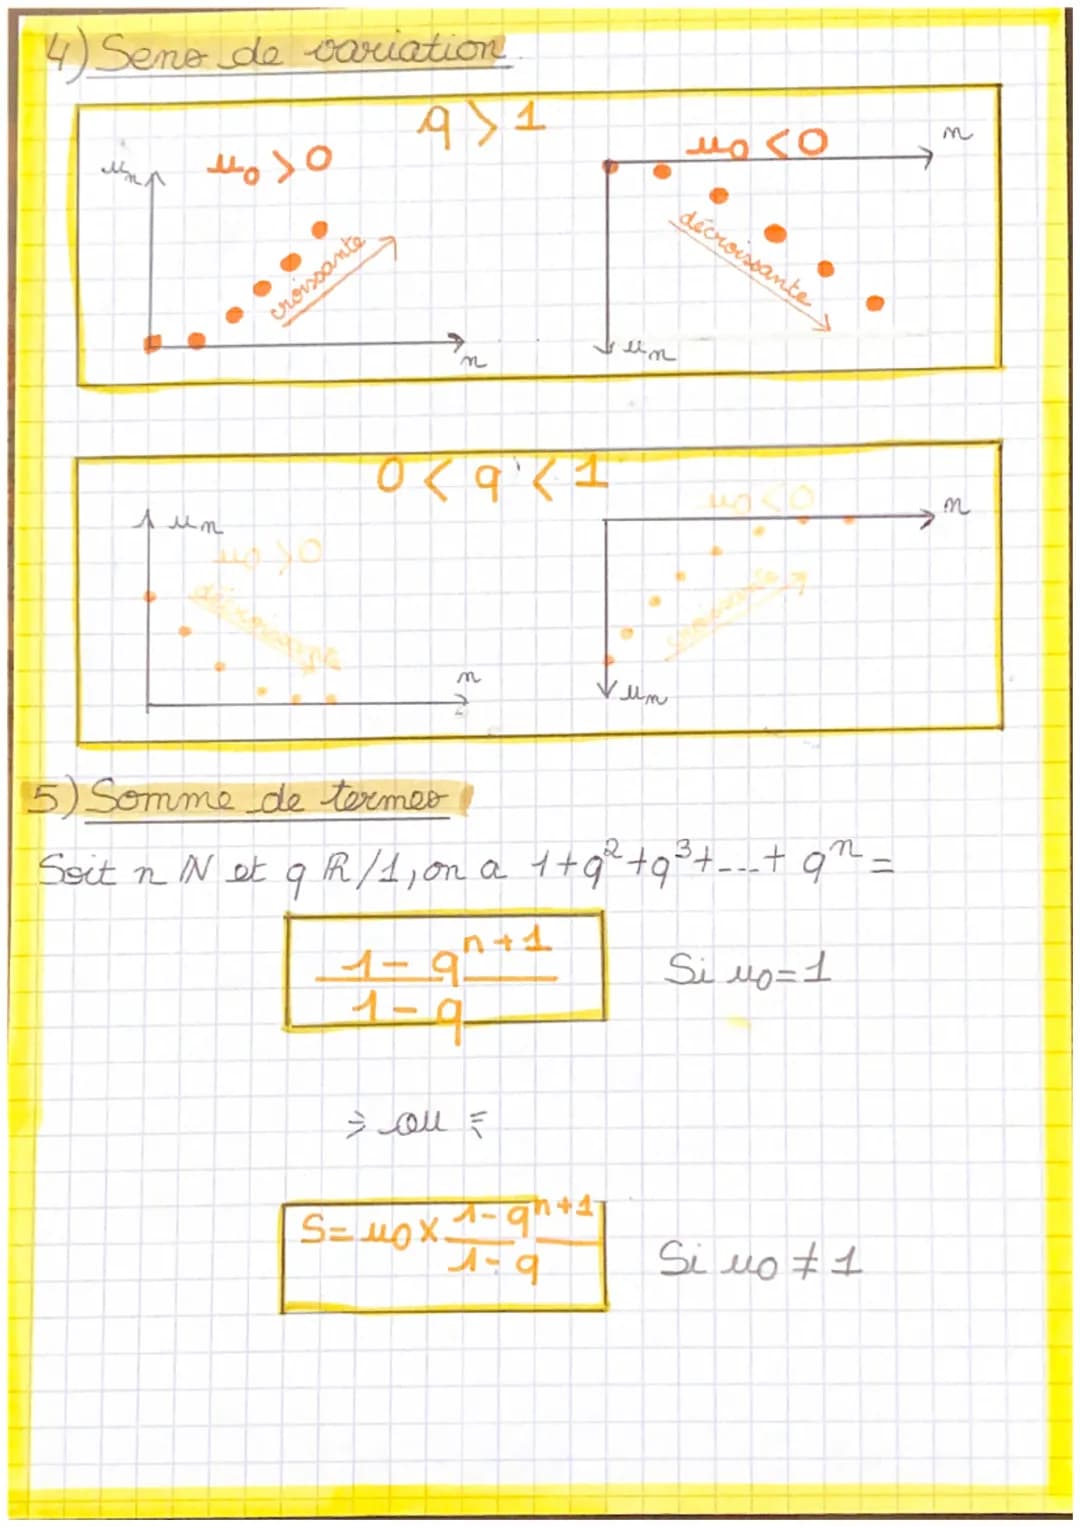 4) Sens de variation
q > 1
un
u0 > 0
croissante
n
u0 < 0
n
décroissante
un
0 < q < 1
un
u0 > 0
décroissante
n
u0 < 0
n
croissante
un
5) Somme de termes
Soit n N et q R/1, on a 1+q²+q³+...+qⁿ =
1-qⁿ⁺¹
1-q
Si u0=1
⇒ ou ⇐
S= u0 × 1-qⁿ⁺¹
1-q
Si u0 ≠ 1